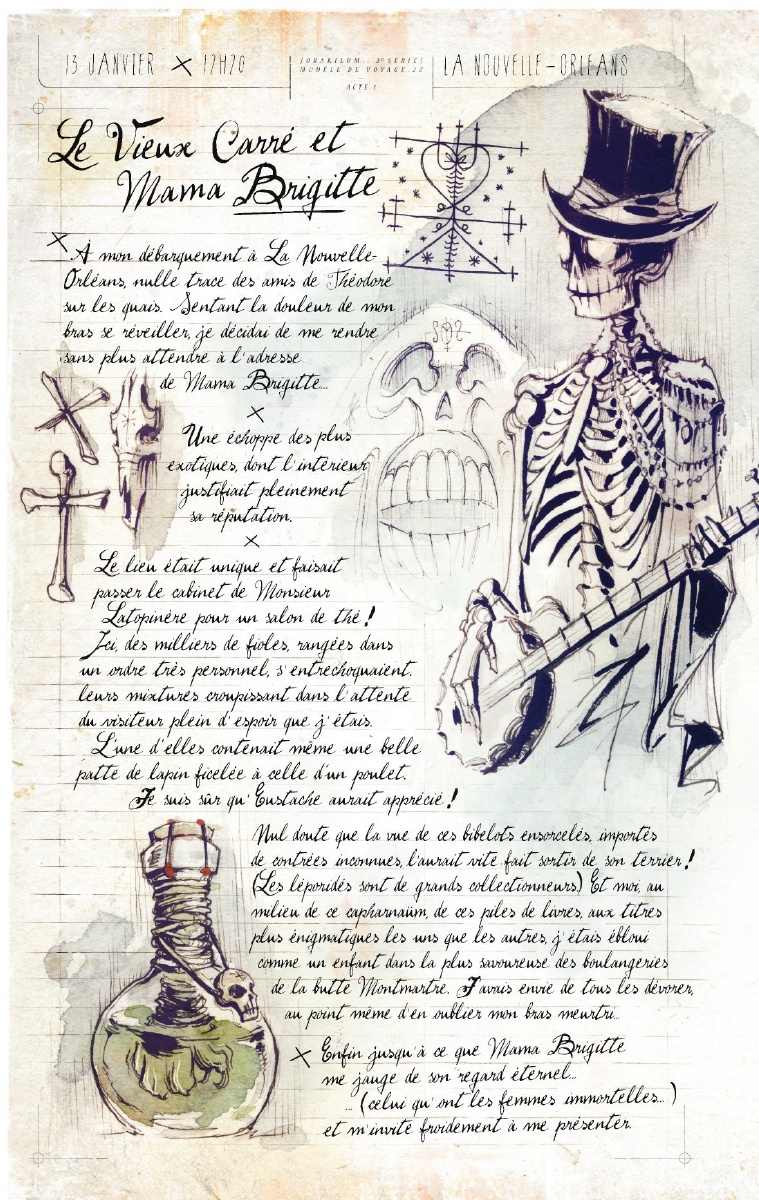 13 JANVIER × 12H20
(ORAKILUM... 2º SÉRIE)
MODÈLE DE VOYAGE.22
ACTE 1
LA NOUVELLE-ORLÉANS
Le Vieux Carré et
Mama Brigitte
À mon débarquement à La Nouvelle-
Orléans, nulle trace des amis de Théodore
sur les quais. Sentant la douleur de mon
bras se réveiller, je décidai de me rendre
sans plus attendre à l'adresse
de Mama Brigitte...
Une échoppe des plus
exotiques, dont l'intérieur
justifiait pleinement
sa réputation.
Le lieu était unique et faisait
passer le cabinet de Monsieur
Latopinère pour un salon de thé !
Ici, des milliers de fioles, rangées dans
un ordre très personnel, s'entrechoquaient.
leurs mixtures croupissant dans l'attente
du visiteur plein d'espoir que j'étais.
L'une d'elles contenait même une belle
patte de lapin ficelée à celle d'un poulet.
Je suis sûr qu'Eustache aurait apprécié !
Nul doute que la vue de ces bibelots ensorcelés, importés
de contrées inconnues, l'aurait vite fait sortir de son terrier !
(Les léporidés sont de grands collectionneurs.) Et moi, au
milieu de ce capharnaüm, de ces piles de livres, aux titres
plus énigmatiques les uns que les autres, j'étais ébloui
comme un enfant dans la plus savoureuse des boulangeries
de la butte Montmartre. J'avais envie de tous les dévorer,
au point même d'en oublier mon bras meurtri...
Enfin jusqu'à ce que Mama Brigitte
me jauge de son regard éternel...
... (celui qu'ont les femmes immortelles...)
et m'invite froidement à me présenter.